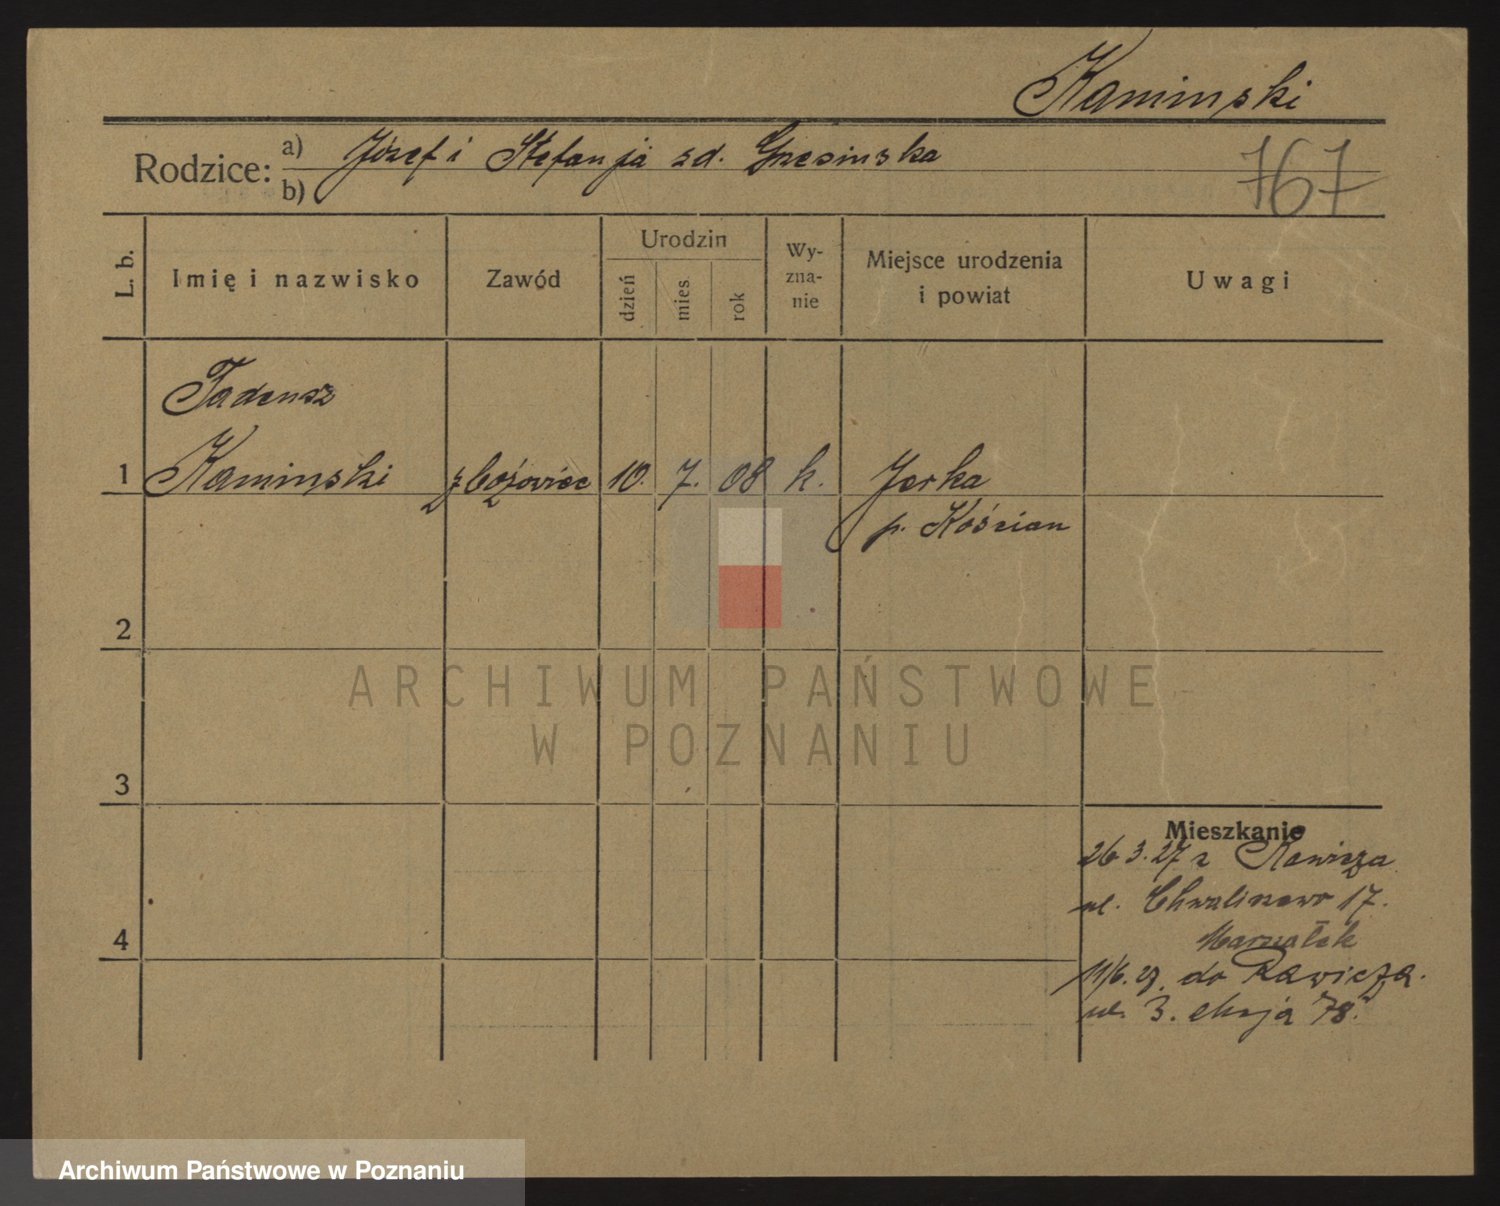 Kaminski
Rodzice: a) Józef i Stefanja zd. Grzesinska
b)
767
L. b.
Imię i nazwisko
Zawód
Urodzin
dzień
mies.
rok
Wy-
zna-
nie
Miejsce urodzenia
i powiat
Uwagi
Tadeusz
1 Kaminski zbożowiec 10. 7. 08 k. Jerka
p. Kościan
2
ARCHIWUM PAŃSTWOWE
W POZNANIU
3
Mieszkanie
26.3.27 z Rawicza
ul. Chwaliszewo 17.
Marszałek
4
11/6.27. do Rawicza.
ul. 3. Maja 78.
Archiwum Państwowe w Poznaniu